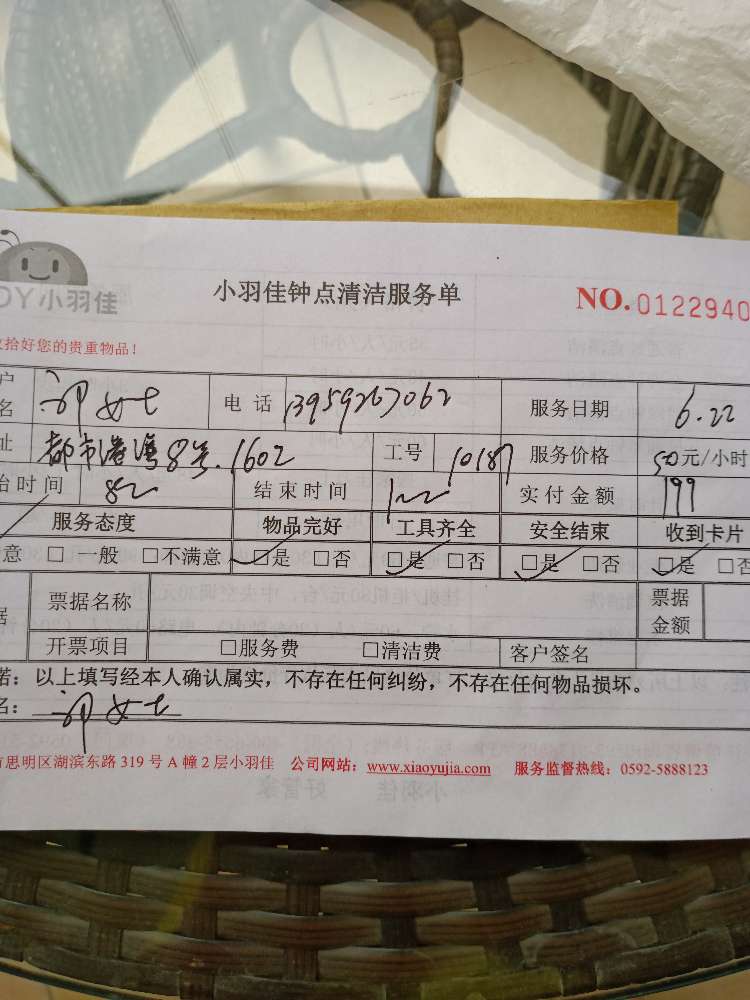 DY小羽佳
小羽佳钟点清洁服务单
NO. 0122940
拾好您的贵重物品!
户名 邓女士 电话 13959267062 服务日期 6.22
址 都市港湾8号.1602 工号 10187 服务价格 50元/小时
始时间 结束时间 实付金额 199
服务态度 物品完好 工具齐全 安全结束 收到卡片
意 □ 一般 □不满意 □是 □否 □是 □否 □是 □否 □是 □否
据 票据名称 票据金额
开票项目 □服务费 □清洁费 客户签名
诺:以上填写经本人确认属实,不存在任何纠纷,不存在任何物品损坏。
名: 邓女士
思明区湖滨东路 319 号 A 幢 2 层小羽佳 公司网站:www.xiaoyujia.com 服务监督热线:0592-5888123